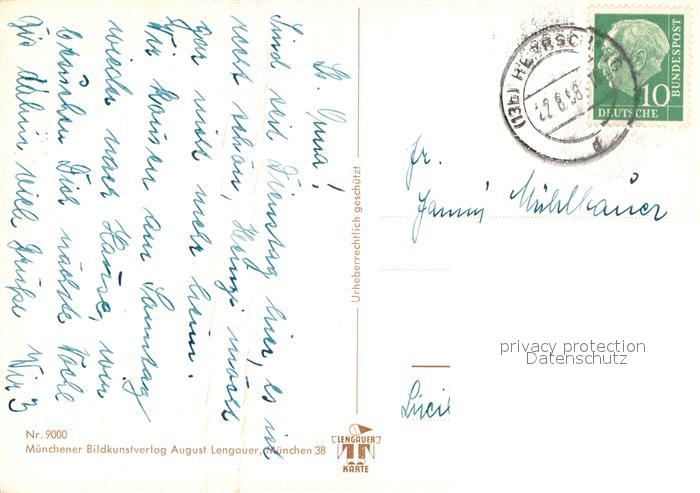 Lb. Oma!
Sind seit Dienstag hier, es ist
sehr schön, Heinzi möcht
gar nicht mehr heim.
Wir kommen am Samstag
wieder nach Hause, wir
besuchen Dich nächste Woche
Bis dahin viele Grüße Wir 3
Nr. 9000
Münchener Bildkunstverlag August Lengauer, München 38
Urheberrechtlich geschützt
LENGAUER
KARTE
(13b) HERRSCHING
22.8.58
10
DEUTSCHE
BUNDESPOST
Fr.
Fanny Mühlbauer
privacy protection
Datenschutz